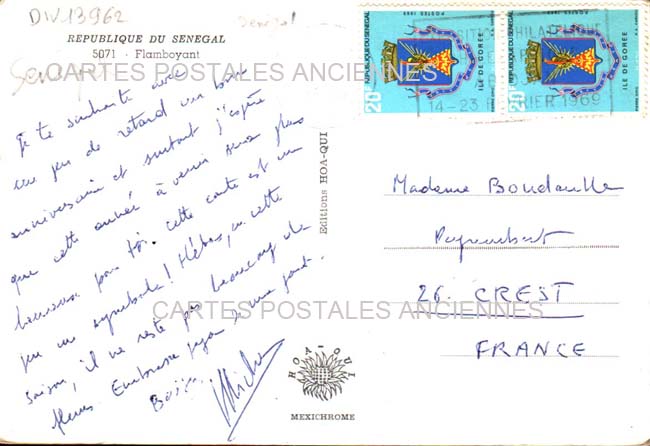 DIV13962
Sénégal
REPUBLIQUE DU SENEGAL
5071 - Flamboyant
CARTES POSTALES ANCIENNES
Je te souhaite avec
un peu de retard un bon
anniversaire et surtout j'espère
que cette année à venir sera plus
heureuse pour toi. Cette carte est un
peu un symbole! Hélas, en cette
saison, il ne reste pas beaucoup de
fleurs. Embrasse
Editions HOA-QUI
HOA-QUI
MEXICHROME
REPUBLIQUE DU SENEGAL
POSTES 1969
ILE DE GOREE
20
REPUBLIQUE DU SENEGAL
ILE DE GOREE
20
PHILATELIQUE
14-23 FEVRIER 1969
Madame
26. CREST
FRANCE
CARTES POSTALES ANCIENNES